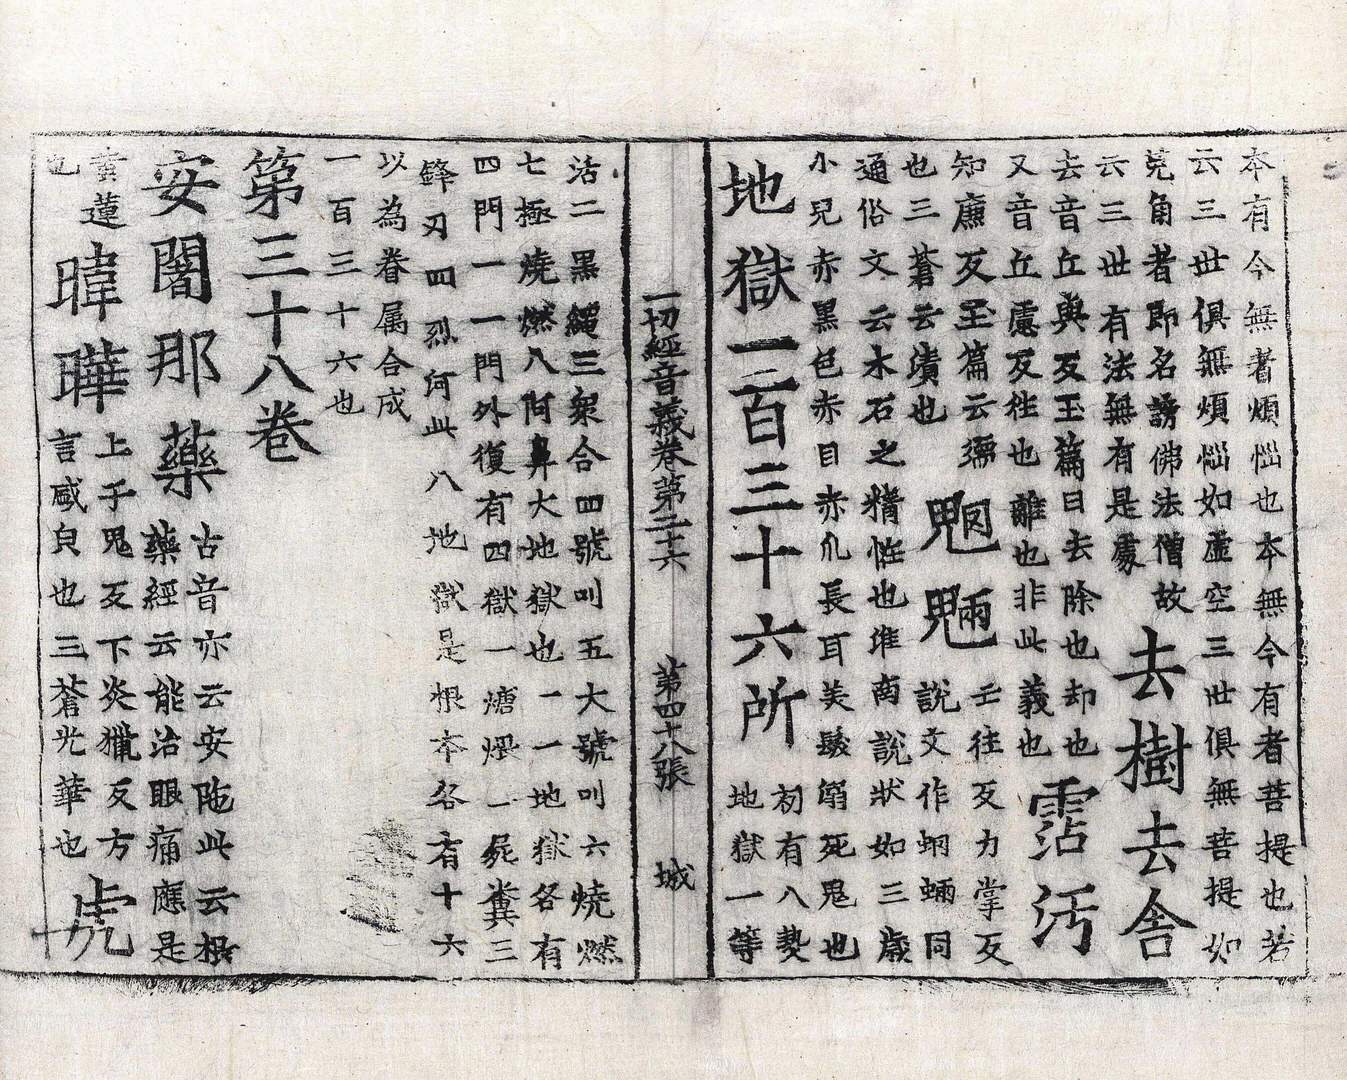 本有今無者煩惱也本無今有者菩提也若
云三世俱無煩惱如虛空三世俱無菩提如
兎角者即名謗佛法僧故
云三世有法無有是處
去樹去舍
去音丘與反玉篇曰去除也却也
又音丘慮反往也離也非此義也
霑汚
知廉反玉篇云濡
也三蒼云漬也
魍魎
壬往反力掌反
說文作蛧蜽同
通俗文云木石之精恠也淮南說狀如三歲
小兒赤黑色赤目赤爪長耳美髮溺死鬼也
地獄一百三十六所
初有八熱
地獄一等
一切經音義卷第二十六 第四十八張 城
活二黑繩三衆合四號叫五大號叫六燒燃
七極燒燃八阿鼻大地獄也一一地獄各有
四門一一門外復有四獄一煻煨二屍糞三
鋒刃四烈河此八地獄是根本各有十六
以為眷属合成
一百三十六也
第三十八卷
安闍那藥
古音亦云安陁此云根
藥經云能治眼痛應是
黃蓮
也
暐曄
上于鬼反下炎獵反方
言盛皃也三蒼光華也
虎